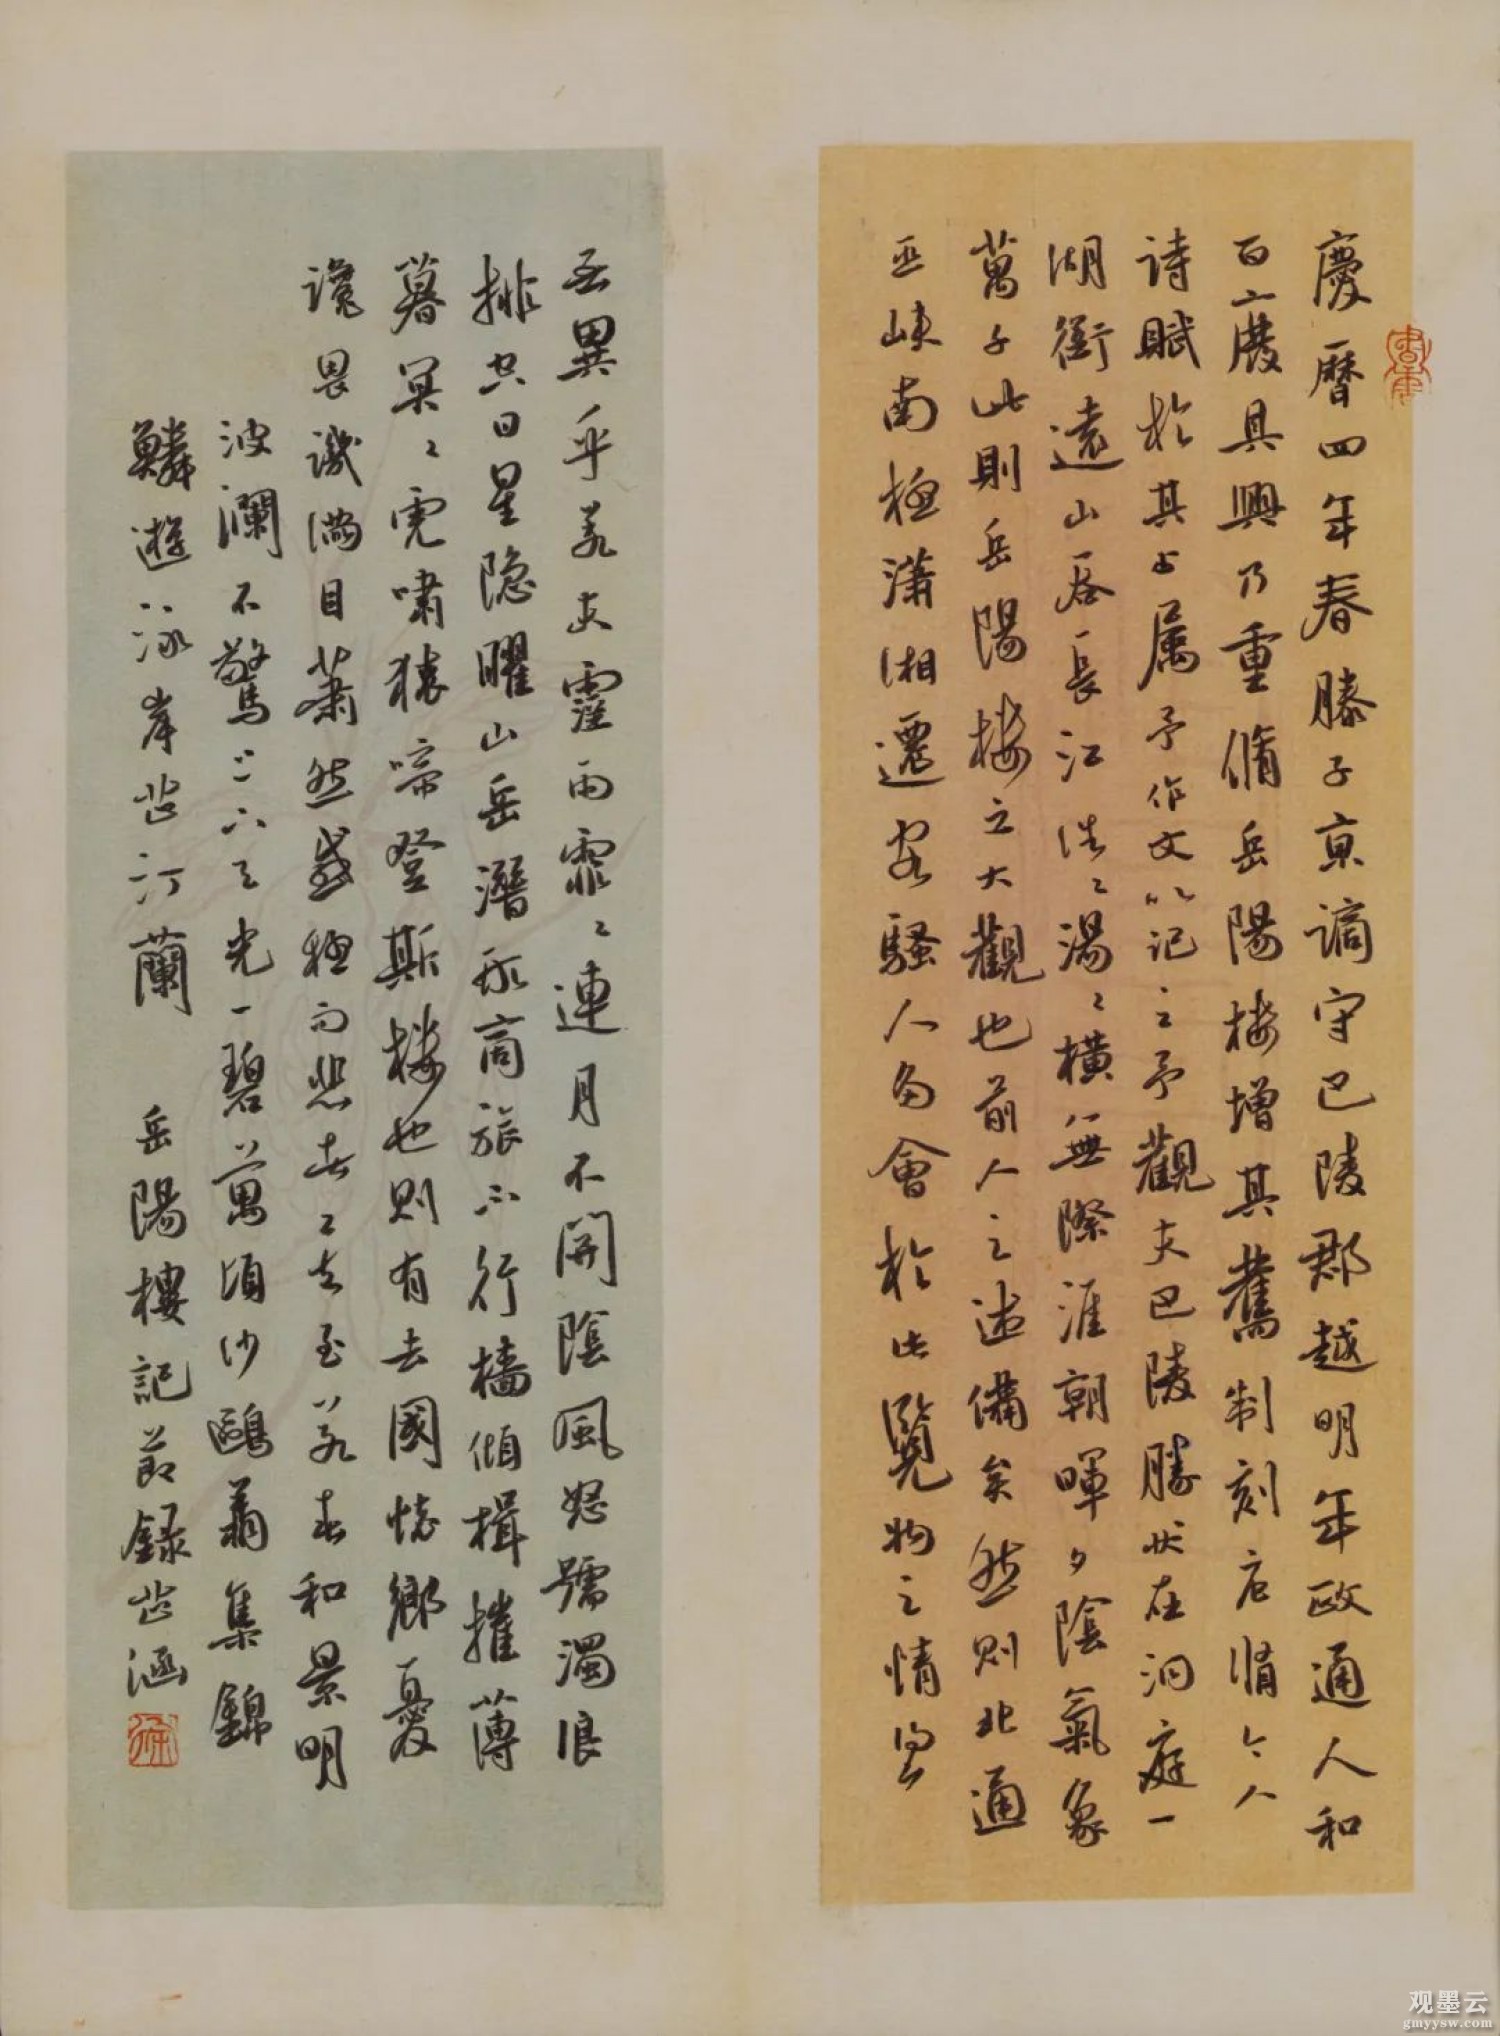 慶曆四年春滕子京謫守巴陵郡越明年政通人和
百廢具興乃重脩岳陽樓增其舊制刻唐賢今人
詩賦於其上属予作文以記之予觀夫巴陵勝狀在洞庭一
湖銜遠山吞長江浩〻湯〻橫無際涯朝暉夕陰氣象
萬千此則岳陽樓之大觀也前人之述備矣然則北通
巫峽南極瀟湘遷客騷人多會於此覽物之情得
无異乎若夫霪雨霏〻連月不開陰風怒號濁浪
排空日星隱曜山岳潛形商旅不行檣傾楫摧薄
暮冥〻虎嘯猿啼登斯樓也則有去國懷鄉憂
讒畏譏滿目蕭然感極而悲者〻矣至若春和景明
波瀾不驚上下天光一碧萬頃沙鷗翔集錦
鱗遊泳岸芷汀蘭 岳陽樓記節錄芷涵
观墨云
gmyysw.com